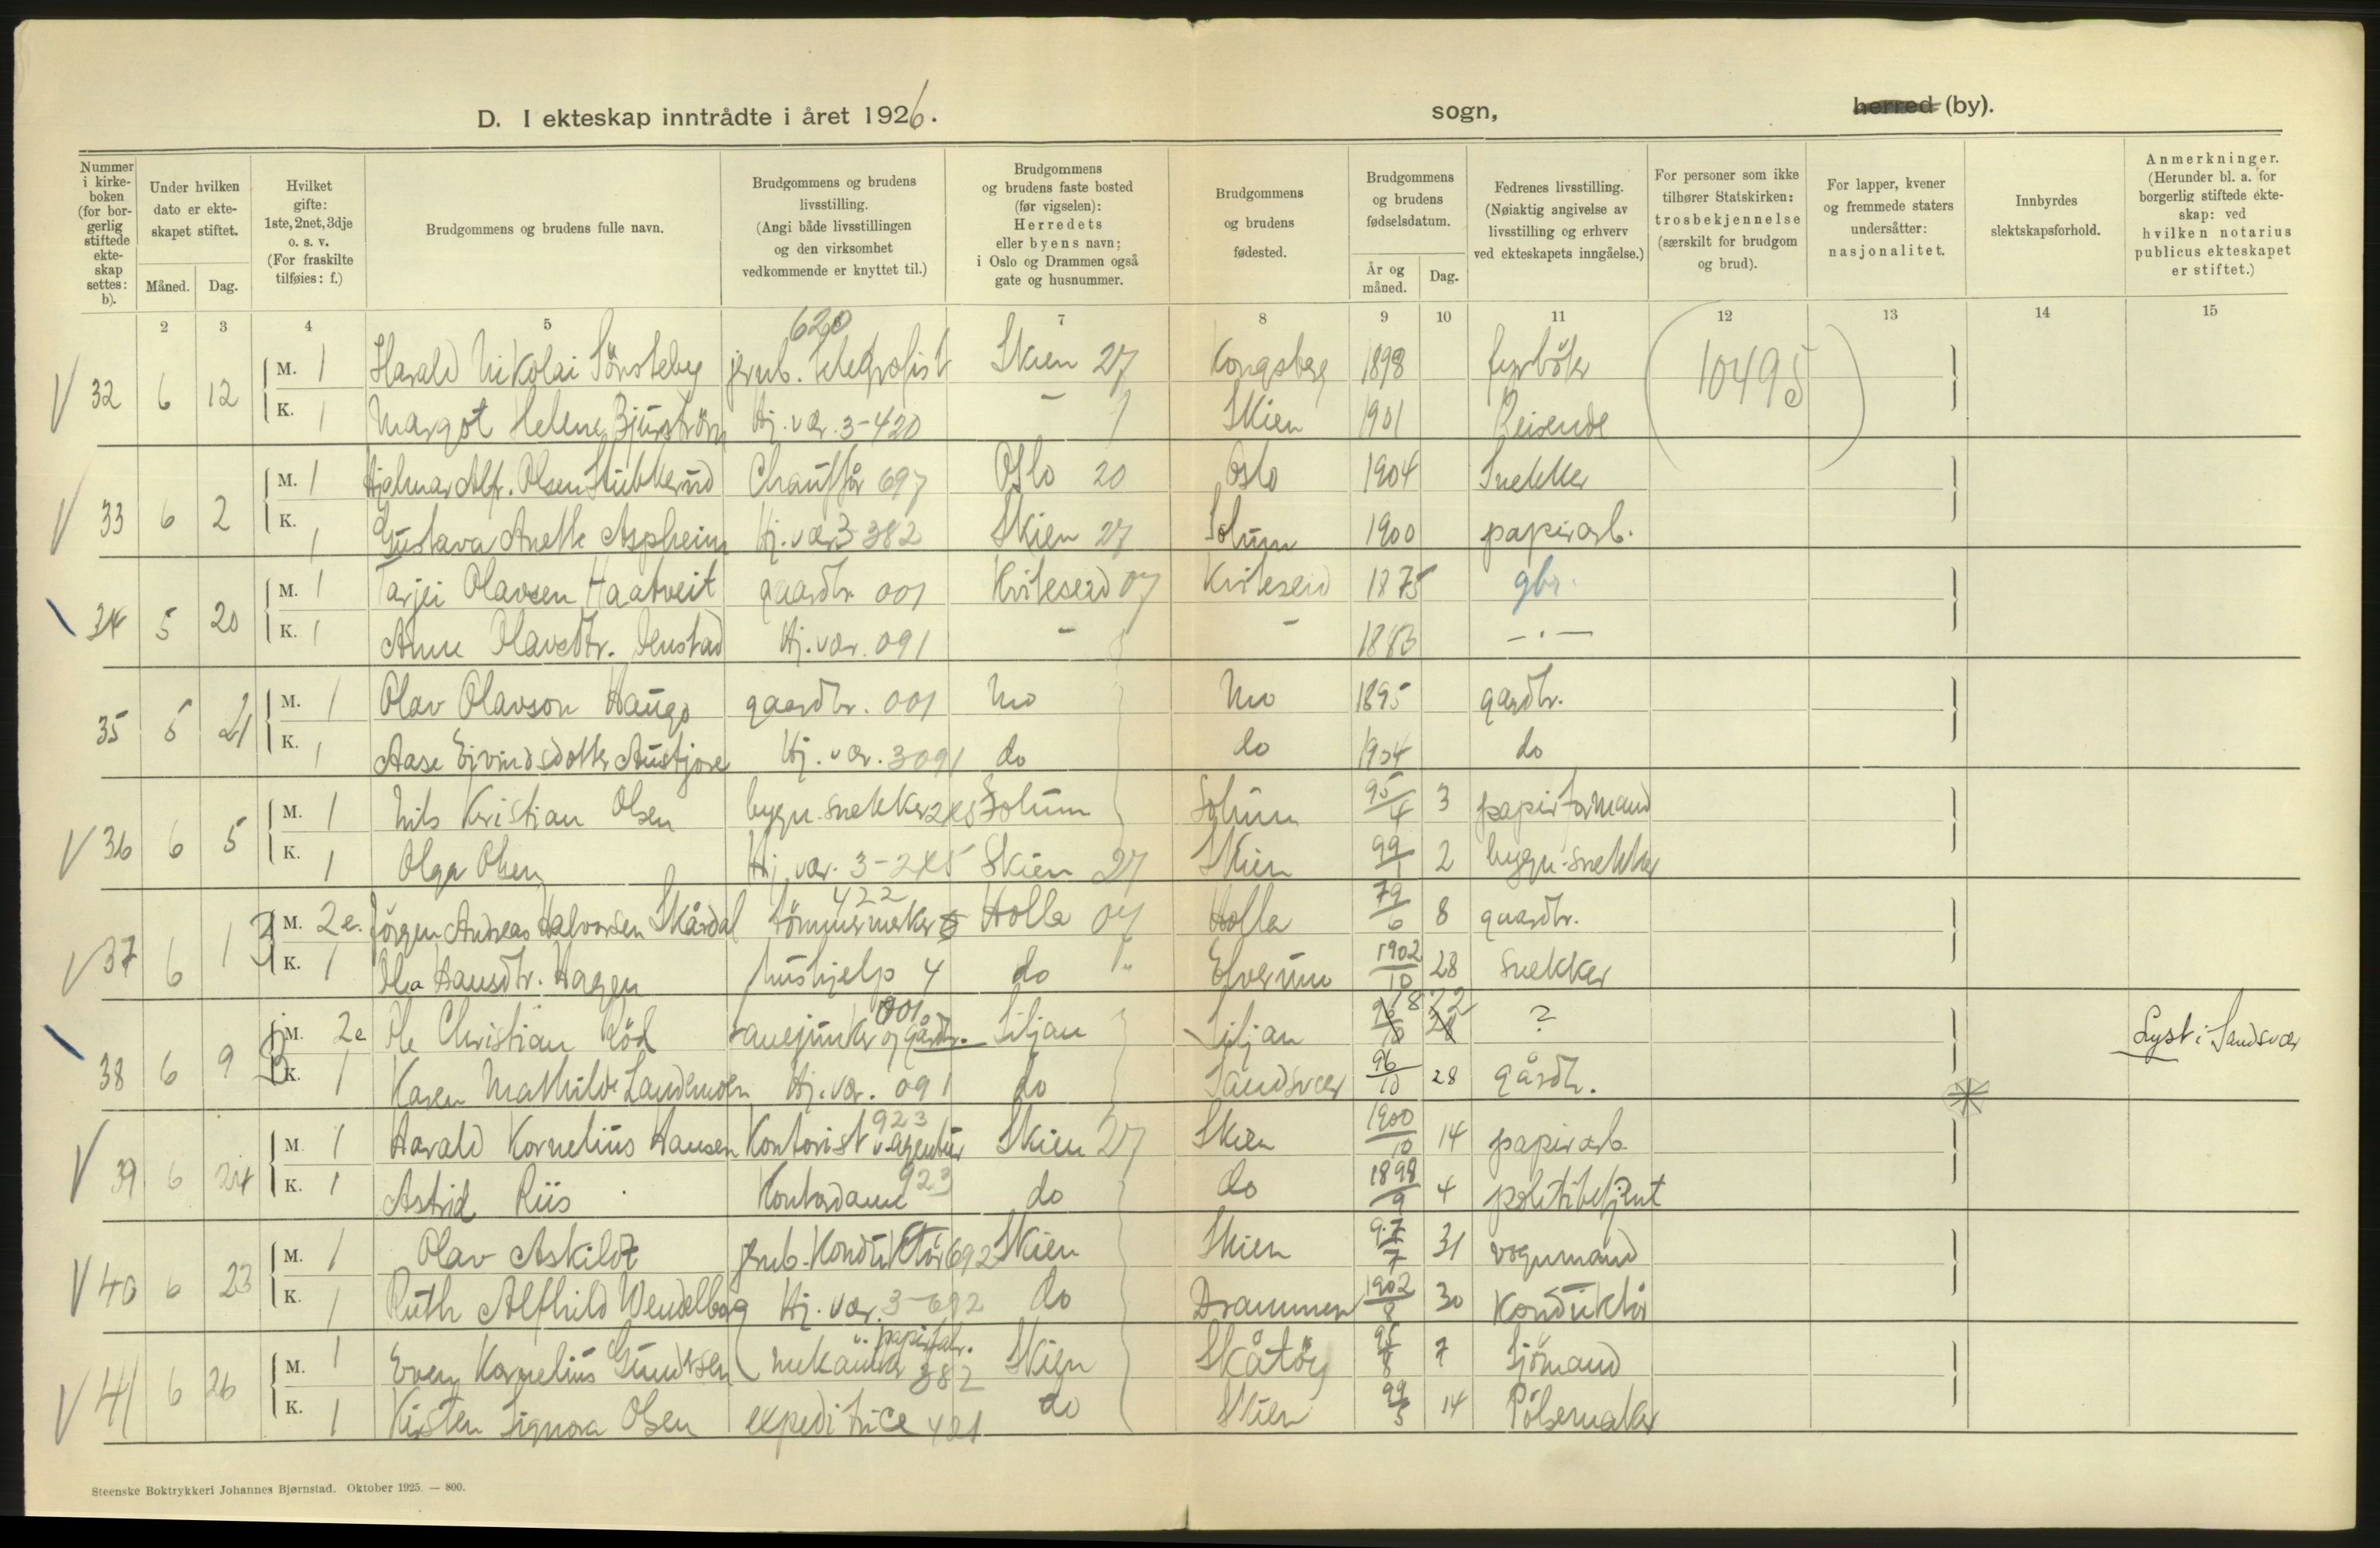 D. I ekteskap inntrådte i året 1926.
sogn,
herred (by).
Nummer i kirkeboken (for borgerlig stiftede ekteskap settes: b).
Under hvilken dato er ekteskapet stiftet.
Måned. Dag.
Hvilket gifte: 1ste, 2net, 3dje o. s. v. (For fraskilte tilføies: f.)
Brudgommens og brudens fulle navn.
Brudgommens og brudens livsstilling. (Angi både livsstillingen og den virksomhet vedkommende er knyttet til.)
Brudgommens og brudens faste bosted (før vigselen): Herredets eller byens navn; i Oslo og Drammen også gate og husnummer.
Brudgommens og brudens fødested.
Brudgommens og brudens fødselsdatum.
År og måned. Dag.
Fedrenes livsstilling. (Nøiaktig angivelse av livsstilling og erhverv ved ekteskapets inngåelse.)
For personer som ikke tilhører Statskirken: trosbekjennelse (særskilt for brudgom og brud).
For lapper, kvener og fremmede staters undersåtter: nasjonalitet.
Innbyrdes slektskapsforhold.
Anmerkninger. (Herunder bl. a. for borgerlig stiftede ekteskap: ved hvilken notarius publicus ekteskapet er stiftet.)
2 3 4 5 7 8 9 10 11 12 13 14 15
620
V 32 6 12 M. 1 Harald Nikolai Sönsteby jernb. telegrafist Skien 27 Kongsberg 1898 fyrböter 10495
K. 1 Margot Helene Bjurström Hj. vær. 3-420 - Skien 1901 Reisende
V 33 6 2 M. 1 Hjalmar Alf. Olsen Stubberud Chaufför 697 Oslo 20 Oslo 1904 Snekker
K. 1 Gustava Anette Aspheim Hj. vær 3 382 Skien 27 Solum 1900 papirarb.
34 5 20 M. 1 Tarjei Olavsen Haatveit gaardbr. 001 Kviteseid 07 Kviteseid 1875 gbr.
K. 1 Anne Olavsdtr. Hj. vær. 091 - - 1883 - . -
35 5 21 M. 1 Olav Olavson Haugo gaardbr. 001 Mo Mo 1895 gardbr.
K. 1 Aase Eivindsdotter Austjore Hj. vær. 3091 do do 1904 do
V 36 6 5 M. 1 Nils Kristian Olsen bygn. snekker 245 Solum Solum 95/4 3 papirformand
K. 1 Olga Olsen Hj. vær. 3-245 Skien 27 Skien 99/1 2 bygn. snekker
422
V 37 6 1 M. 2e. Jörgen Andreas Halvorsen Skårdal tömmermerker Holla 07 Holla 79/6 8 gaardbr.
K. 1 Hansdtr. Haggen hushjelp 4 do Elverum 1902/10 28 snekker
001
38 6 9 M. 2e Ole Christian Röd og gårdbr. Siljan Siljan 78 22 ? Lyst i Sandsvær
K. 1 Karen Mathilde Landemoen Hj. vær. 091 do Sandsvær 96/10 28 gårdbr.
923
V 39 6 24 M. 1 Harald Kornelius Hansen Kontorist v. agentur Skien 27 Skien 1900/10 14 papirarb.
K. 1 Astrid Riis Kontordame 923 do do 1898/9 4 politibetjent
V 40 6 23 M. 1 Olav Askildt jernb. Konduktör 692 Skien Skien 97/7 31 vognmand
K. 1 Ruth Alfhild Wendelborg Hj. vær. 3-692 do Drammen 1902/8 30 Konduktör
v. papirfabr.
V 41 6 26 M. 1 Even Kornelius Gundersen mekaniker 382 Skien Skåtöy 95/8 7 Sjömand
K. 1 Kirsten Signora Olsen expeditrice 421 do Skien 99/5 14 Pölsemaker
Steenske Boktrykkeri Johannes Bjørnstad. Oktober 1925. — 800.